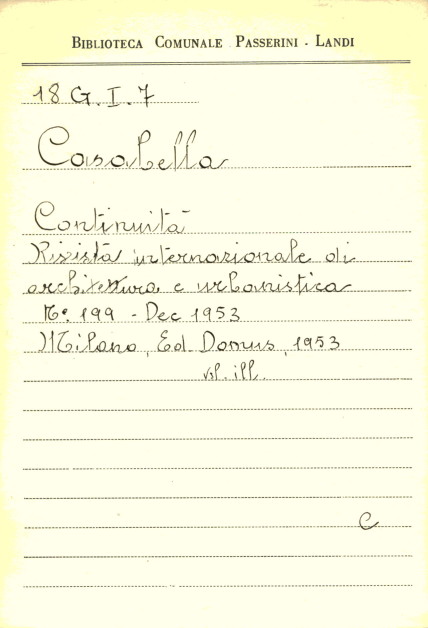 BIBLIOTECA COMUNALE PASSERINI - LANDI
18 G. I. 7
Casabella
Continuità
Rivista internazionale di
architettura e urbanistica
N°. 199 - Dec 1953
Milano, Ed. Domus, 1953
vol. ill.
C